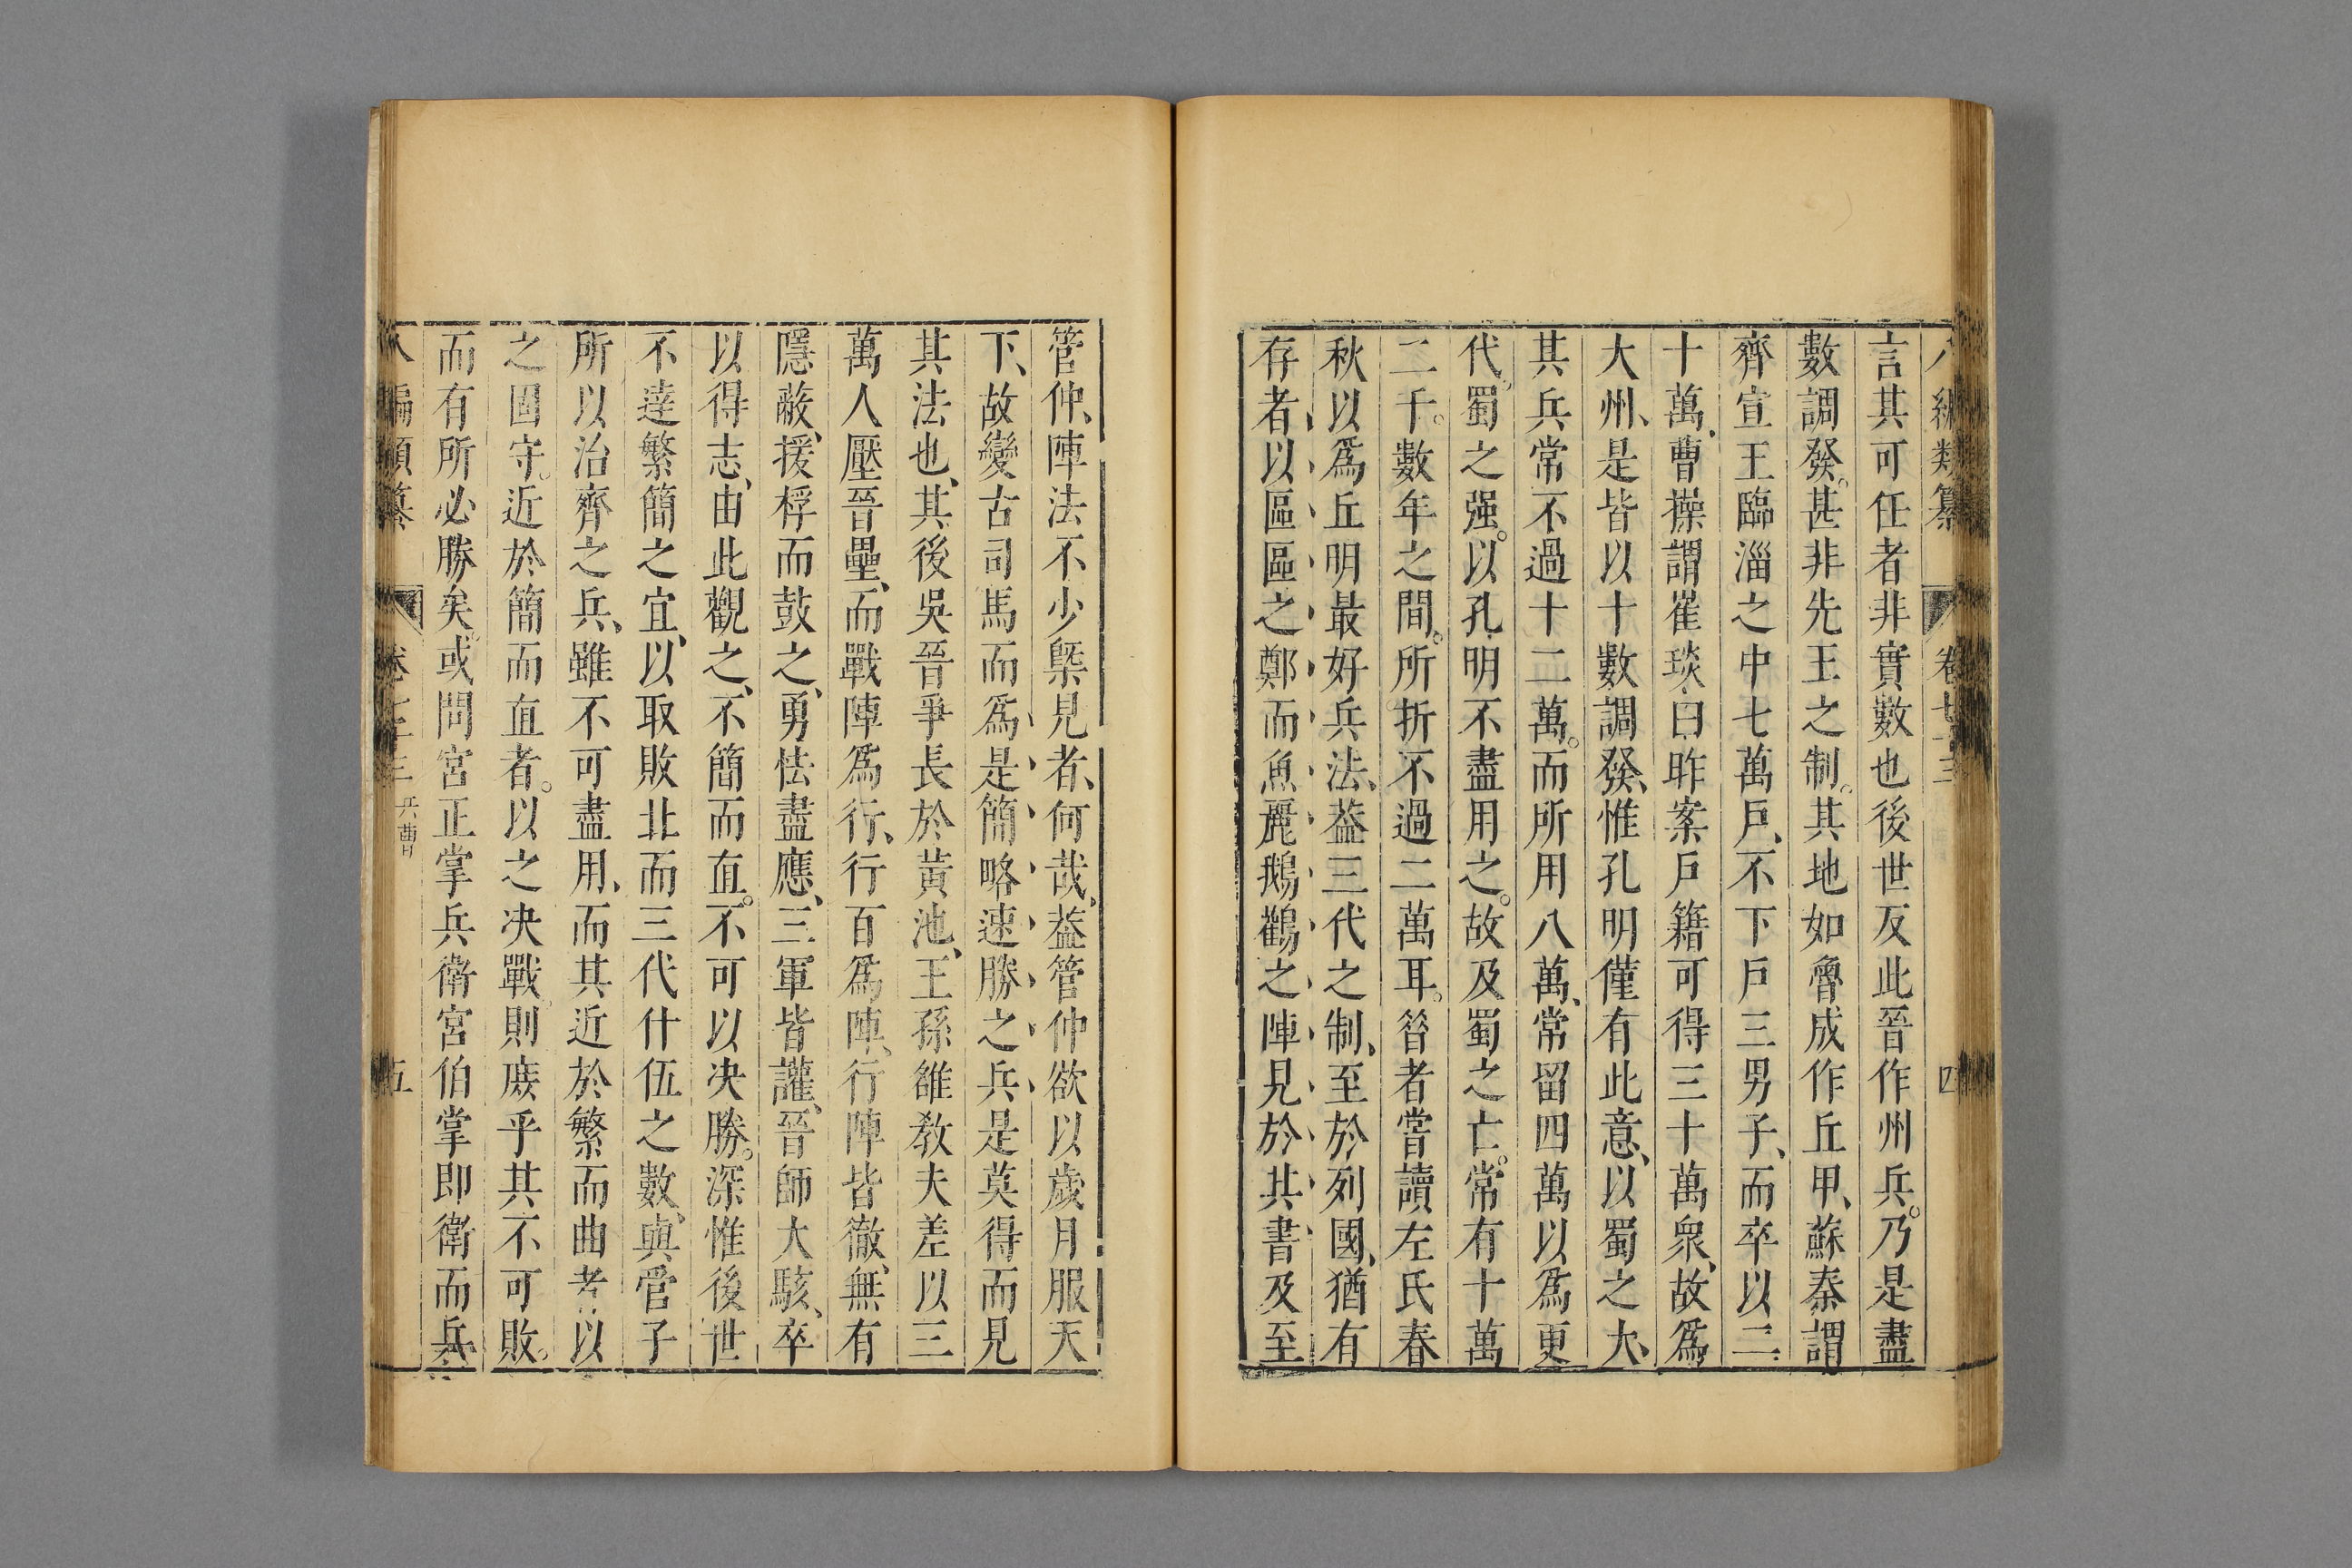 八編類纂 卷七十三 四
言其可任者非實數也後世反此晉作州兵。乃是盡
數調發。甚非先王之制。其地如魯成作丘甲、蘇秦謂
齊宣王臨淄之中七萬戶、不下戶三男子、而卒以二
十萬、曹操謂崔琰曰昨案戶籍可得三十萬衆、故爲
大州、是皆以十數調發、惟孔明僅有此意、以蜀之大、
其兵常不過十二萬。而所用八萬、常留四萬以爲更
代。蜀之强。以孔明不盡用之。故及蜀之亡。常有十萬
二千。數年之間。所折不過二萬耳。昝者嘗讀左氏春
秋以爲丘明最好兵法、葢三代之制、至於列國、猶有
存者、以區區之鄭而魚麗鵝鸛之陣見於其書及至
管仲、陣法不少槩見者、何哉、葢管仲欲以歲月服天
下、故變古司馬而爲是簡略速勝之兵、是莫得而見
其法也、其後吳晉爭長於黃池、王孫雒敎夫差以三
萬人壓晉壘、而戰陣爲行、行百爲陣、行陣皆徹、無有
隱蔽、援桴而鼓之、勇怯盡應、三軍皆讙、晉師大駭、卒
以得志、由此觀之、不簡而直。不可以决勝。深惟後世
不達繁簡之宜、以取敗北而三代什伍之數、與管子
所以治齊之兵、雖不可盡用、而其近於繁而曲者以
之固守。近於簡而直者。以之决戰。則庻乎其不可敗。
而有所必勝矣。或問宮正掌兵衛宮伯掌即衛而兵
八編類纂 卷七十三 兵曹 五